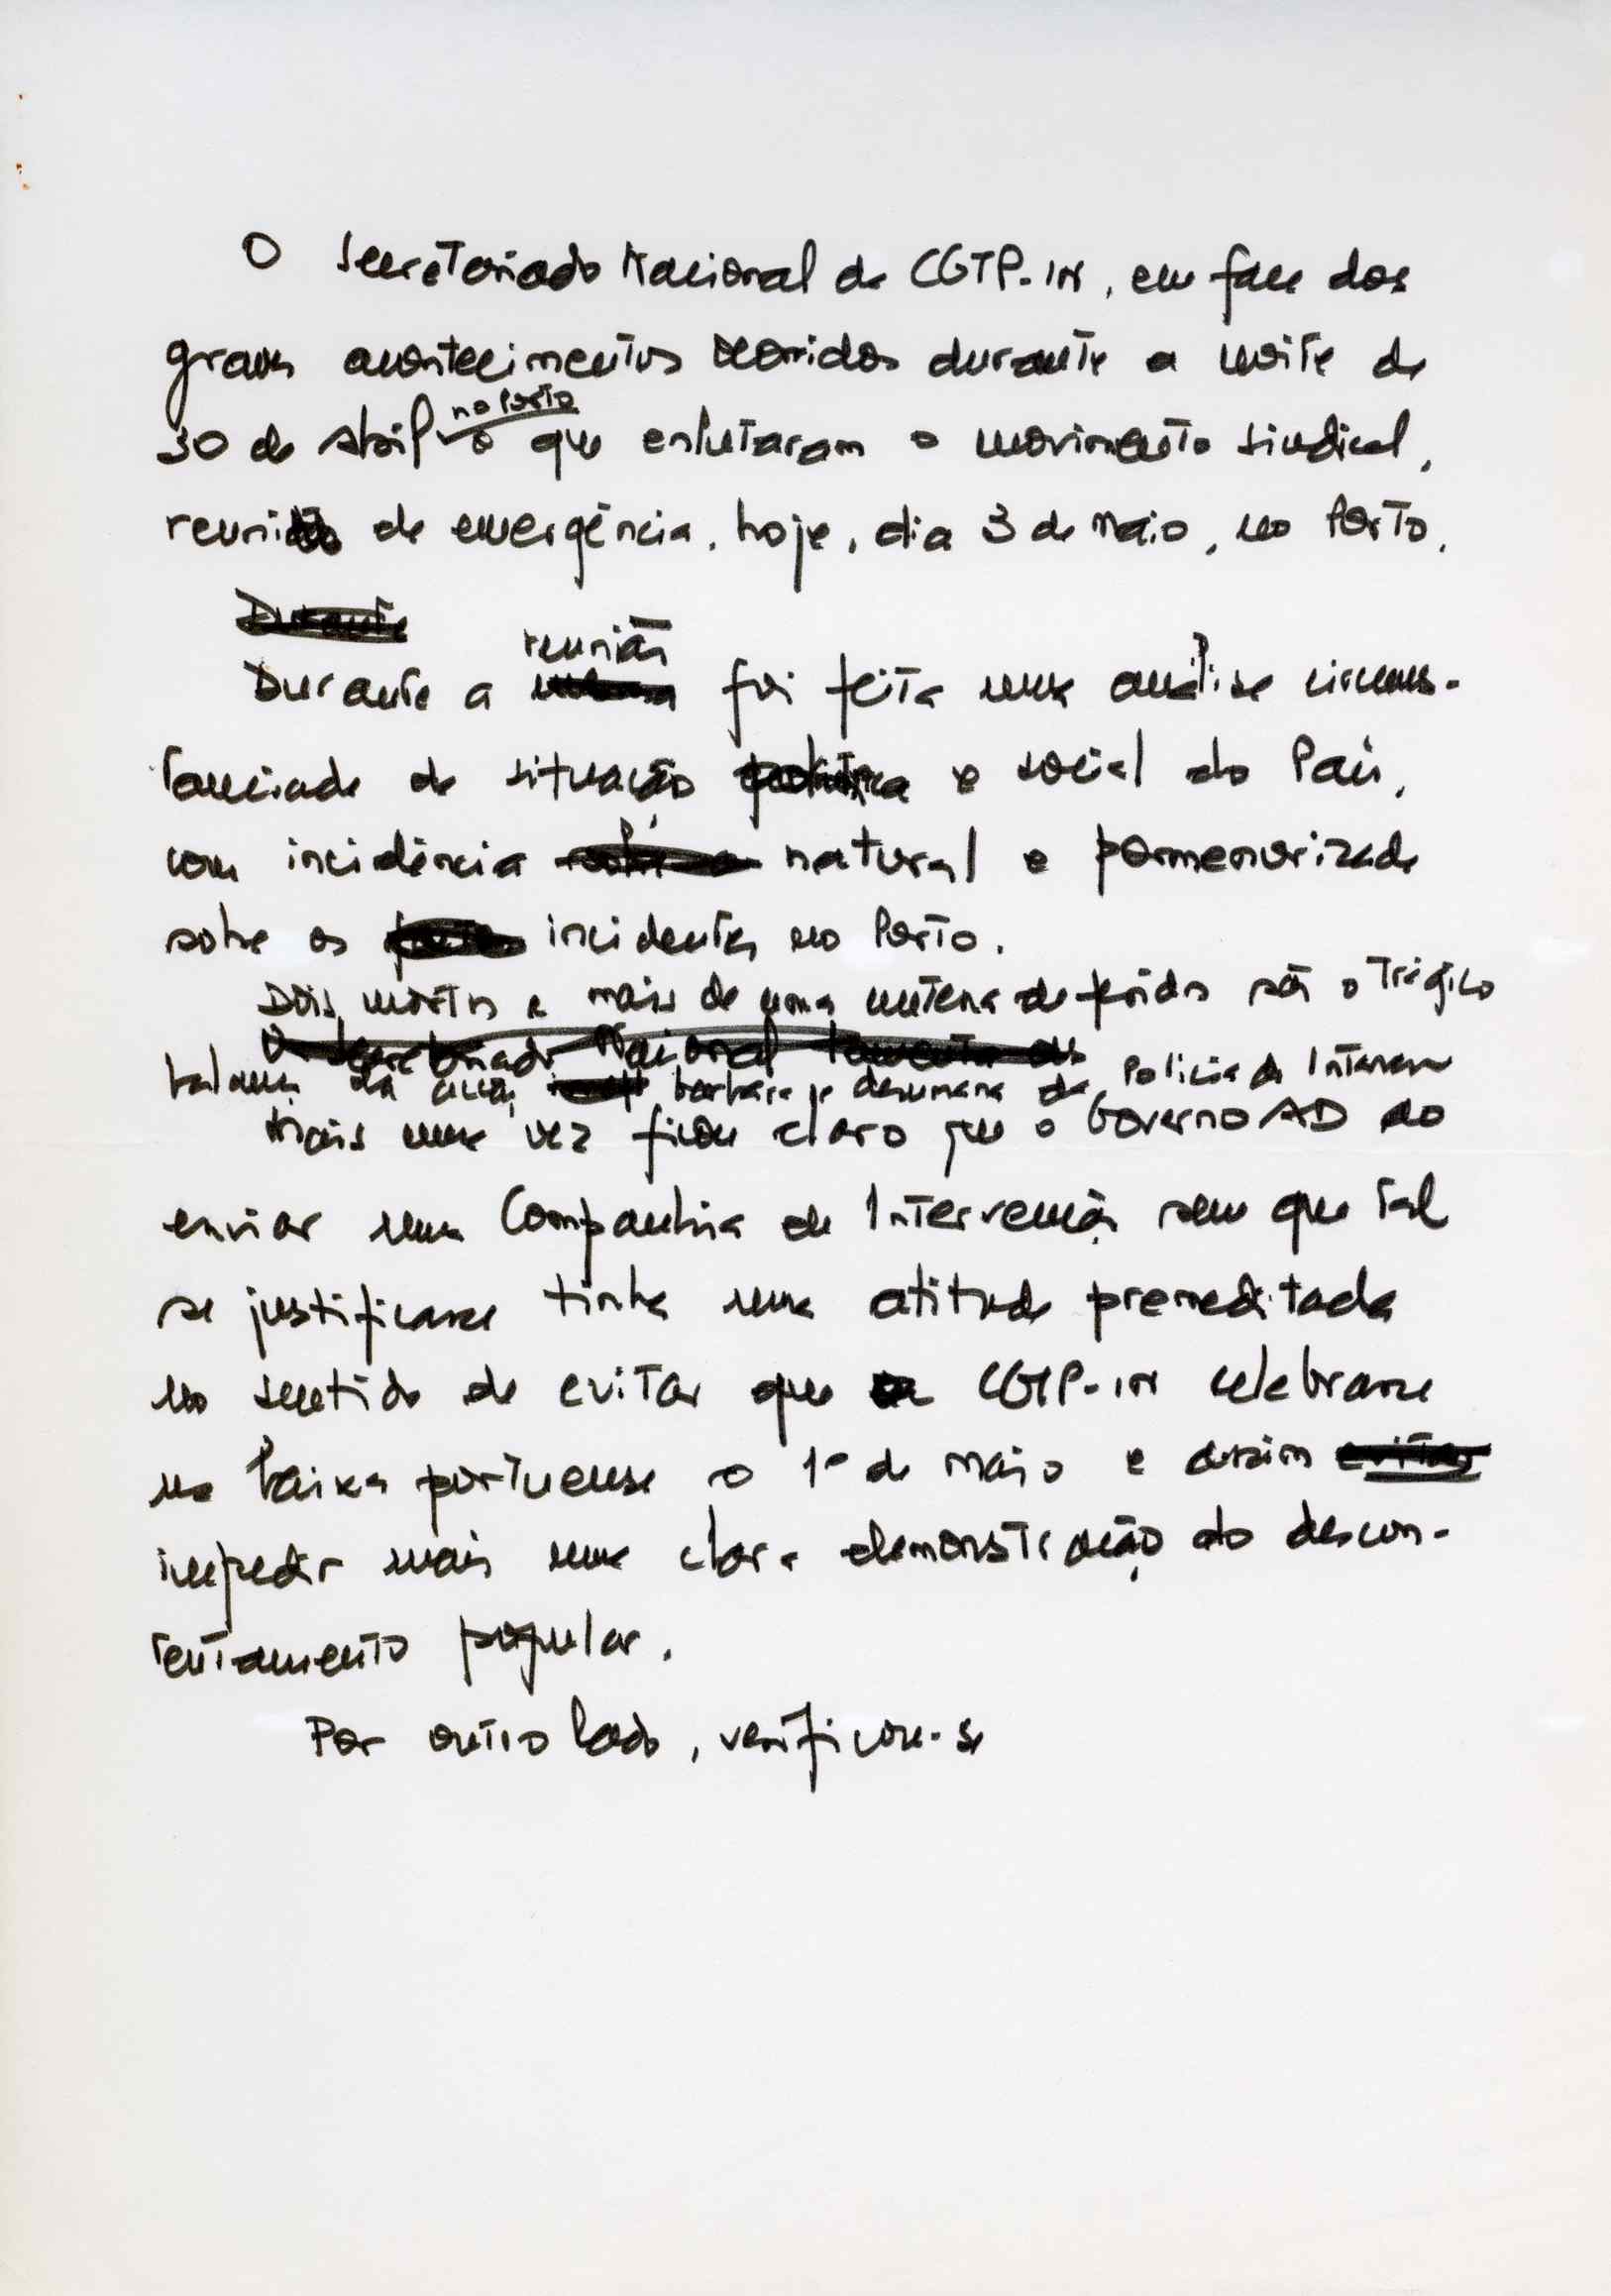 O Secretariado Nacional da CGTP-IN, em face dos
graves acontecimentos ocorridos durante a noite de
no Porto
30 de Abril e que enlutaram o movimento sindical,
reuniu de emergência, hoje, dia 3 de Maio, no Porto.
Durante
reunião
Durante a foi feita uma análise circuns-
tanciada da situação política e social do País,
com incidência natural e pormenorizada
sobre os incidentes no Porto.
Dois mortos e mais de uma centena de feridos são o trágico
O Secretariado Nacional lamenta os
balanço da acção barbara e desumana da Polícia de Intervenção
Mais uma vez ficou claro que o Governo AD ao
enviar uma Companhia de Intervenção sem que tal
se justificasse tinha uma atitude premeditada
no sentido de evitar que a CGTP-IN celebrasse
na baixa portuense o 1º de Maio e assim evitar
impedir mais uma clara demonstração do descon-
tentamento popular.
Por outro lado, verificou-se